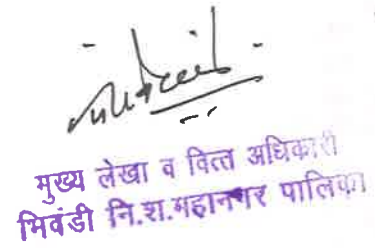 मुख्य लेखा व वित्त अधिकारी
भिवंडी नि.श.महानगर पालिका